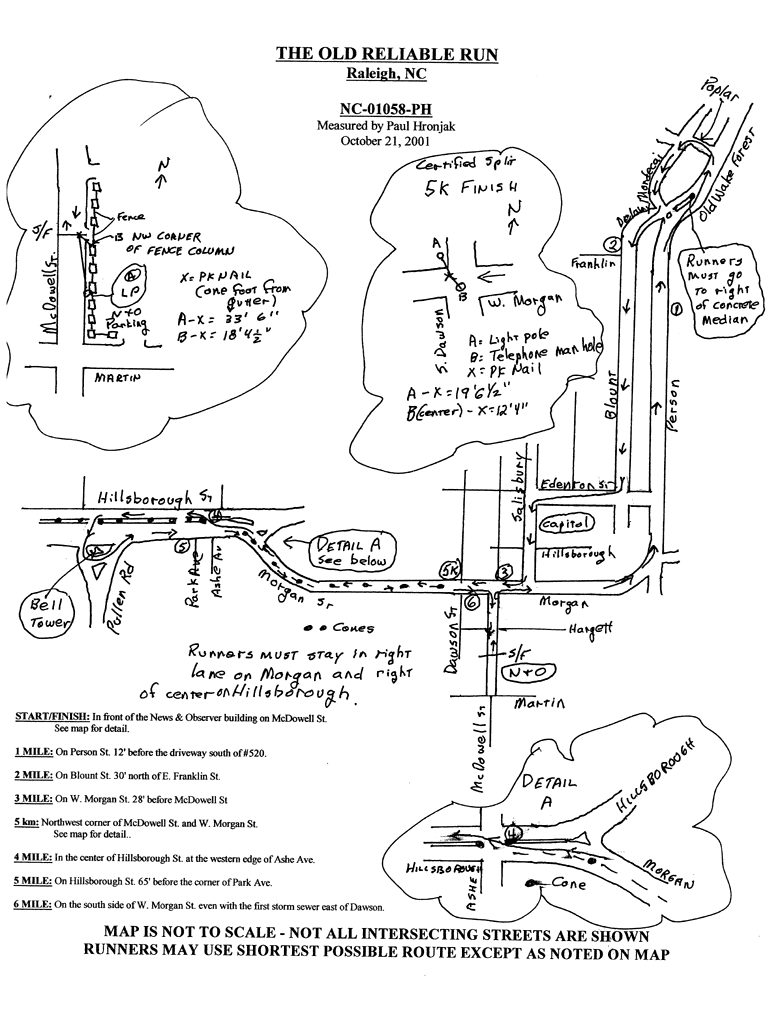 THE OLD RELIABLE RUN
Raleigh, NC
NC-01058-PH
Measured by Paul Hronjak
October 21, 2001
N
S/F
Fence
B NW CORNER
OF FENCE COLUMN
A
LP
X= PK NAIL
(one foot from
gutter)
A-X = 33' 6"
B-X = 18' 4½"
N+O
Parking
McDowell St.
MARTIN
Certified Split
5K FINISH
N
A
B
W. Morgan
S. Dawson
A= Light pole
B= Telephone man hole
X= PK Nail
A - X = 19' 6 1/2"
B(center) - X = 12' 4"
Poplar
Mordecai
Old Wake Forest
2
Franklin
Runners
must go
to right
of concrete
Median
1
Blount
Person
Salisbury
Edenton St
Capitol
Hillsborough
Hillsborough St
4
5
Park Ave
Ashe Av
Bell
Tower
Pullen Rd
Morgan St
DETAIL A
See below
5K
3
6
Morgan
Dawson St
Hargett
S/F
N+O
Martin
McDowell St
Cones
Runners must stay in right
lane on Morgan and right
of center on Hillsborough.
START/FINISH: In front of the News & Observer building on McDowell St.
See map for detail.
1 MILE: On Person St. 12' before the driveway south of #520.
2 MILE: On Blount St. 30' north of E. Franklin St.
3 MILE: On W. Morgan St. 28' before McDowell St
5 km: Northwest corner of McDowell St. and W. Morgan St.
See map for detail..
4 MILE: In the center of Hillsborough St. at the western edge of Ashe Ave.
5 MILE: On Hillsborough St. 65' before the corner of Park Ave.
6 MILE: On the south side of W. Morgan St. even with the first storm sewer east of Dawson.
DETAIL
A
HILLSBOROUGH
4
HILLSBOROUGH
MORGAN
ASHE
Cone
MAP IS NOT TO SCALE - NOT ALL INTERSECTING STREETS ARE SHOWN
RUNNERS MAY USE SHORTEST POSSIBLE ROUTE EXCEPT AS NOTED ON MAP